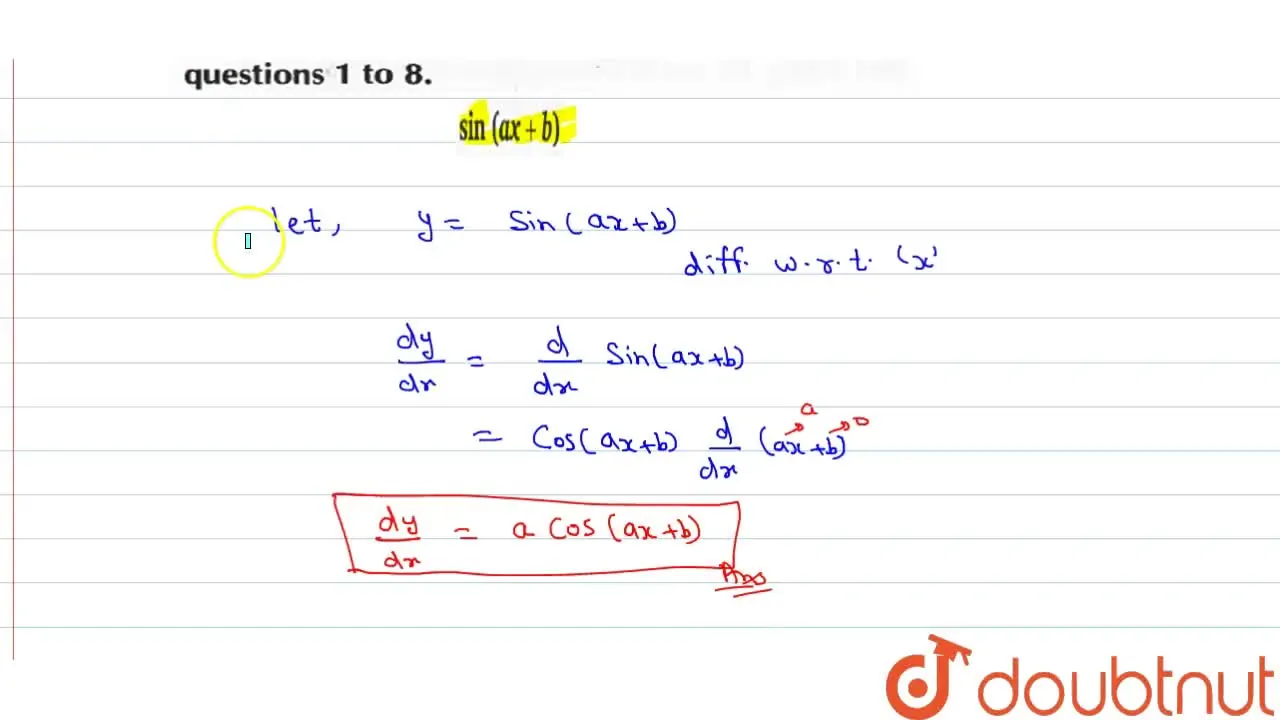 questions 1 to 8.
sin (ax + b)
let, y = Sin(ax+b)
diff. w.r.t. 'x'
dy/dx = d/dx Sin(ax+b)
a 0
= Cos(ax+b) d/dx (ax+b)
dy/dx = a Cos(ax+b)
Ans
doubtnut